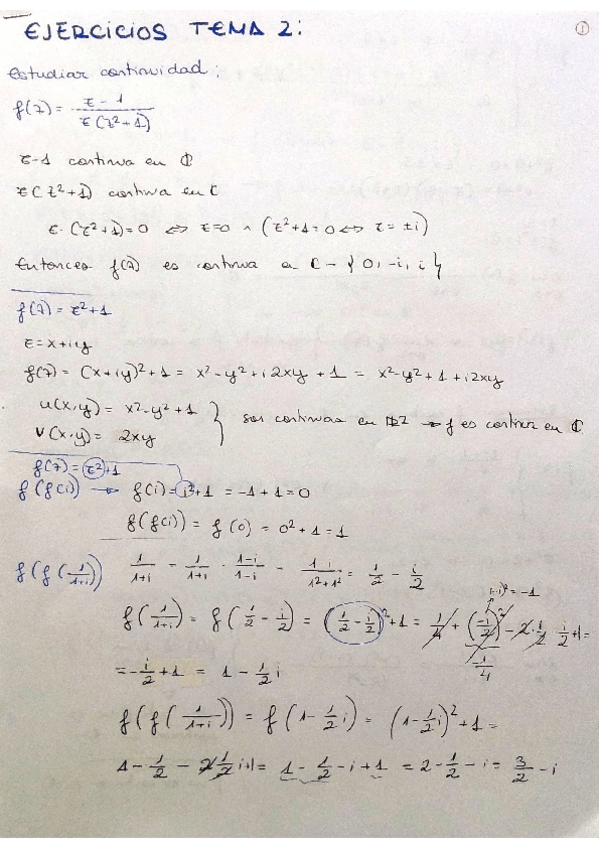 EJERCICIOS TEMA 2:
1
estudiar continuidad:
f(z) = (z - 1) / (z(z²+1))
z-1 continua en ℂ
z(z²+1) continua en ℂ
z·(z²+1)=0 ⇔ z=0 ∧ (z²+1=0 ⇔ z=±i)
Entonces f(z) es continua en ℂ - {0, -i, i}
f(z) = z²+1
z = x+iy
f(z) = (x+iy)²+1 = x²-y²+i2xy+1 = x²-y²+1+i2xy
u(x,y) = x²-y²+1
v(x,y) = 2xy
} son continuas en ℝ² → f es contínua en ℂ
f(z) = z²+1
f(f(i)) → f(i) = i²+1 = -1+1 = 0
f(f(i)) = f(0) = 0²+1 = 1
f(f(1/(1+i))) 1/(1+i) = 1/(1+i) · (1-i)/(1-i) = (1-i)/(1²+1²) = 1/2 - i/2
(-i)² = -1
f(1/(1+i)) = f(1/2 - i/2) = (1/2 - i/2)²+1 = 1/4 + (-i/2)² - 2·1/2 i/2+1 =
-1/4
= -i/2+1 = 1 - 1/2 i
f(f(1/(1+i))) = f(1 - 1/2 i) = (1 - 1/2 i)²+1 =
1 - 1/2 - 2 1/2 i+1 = 1 - 1/2 - i + 1 = 2 - 1/2 - i = 3/2 - i